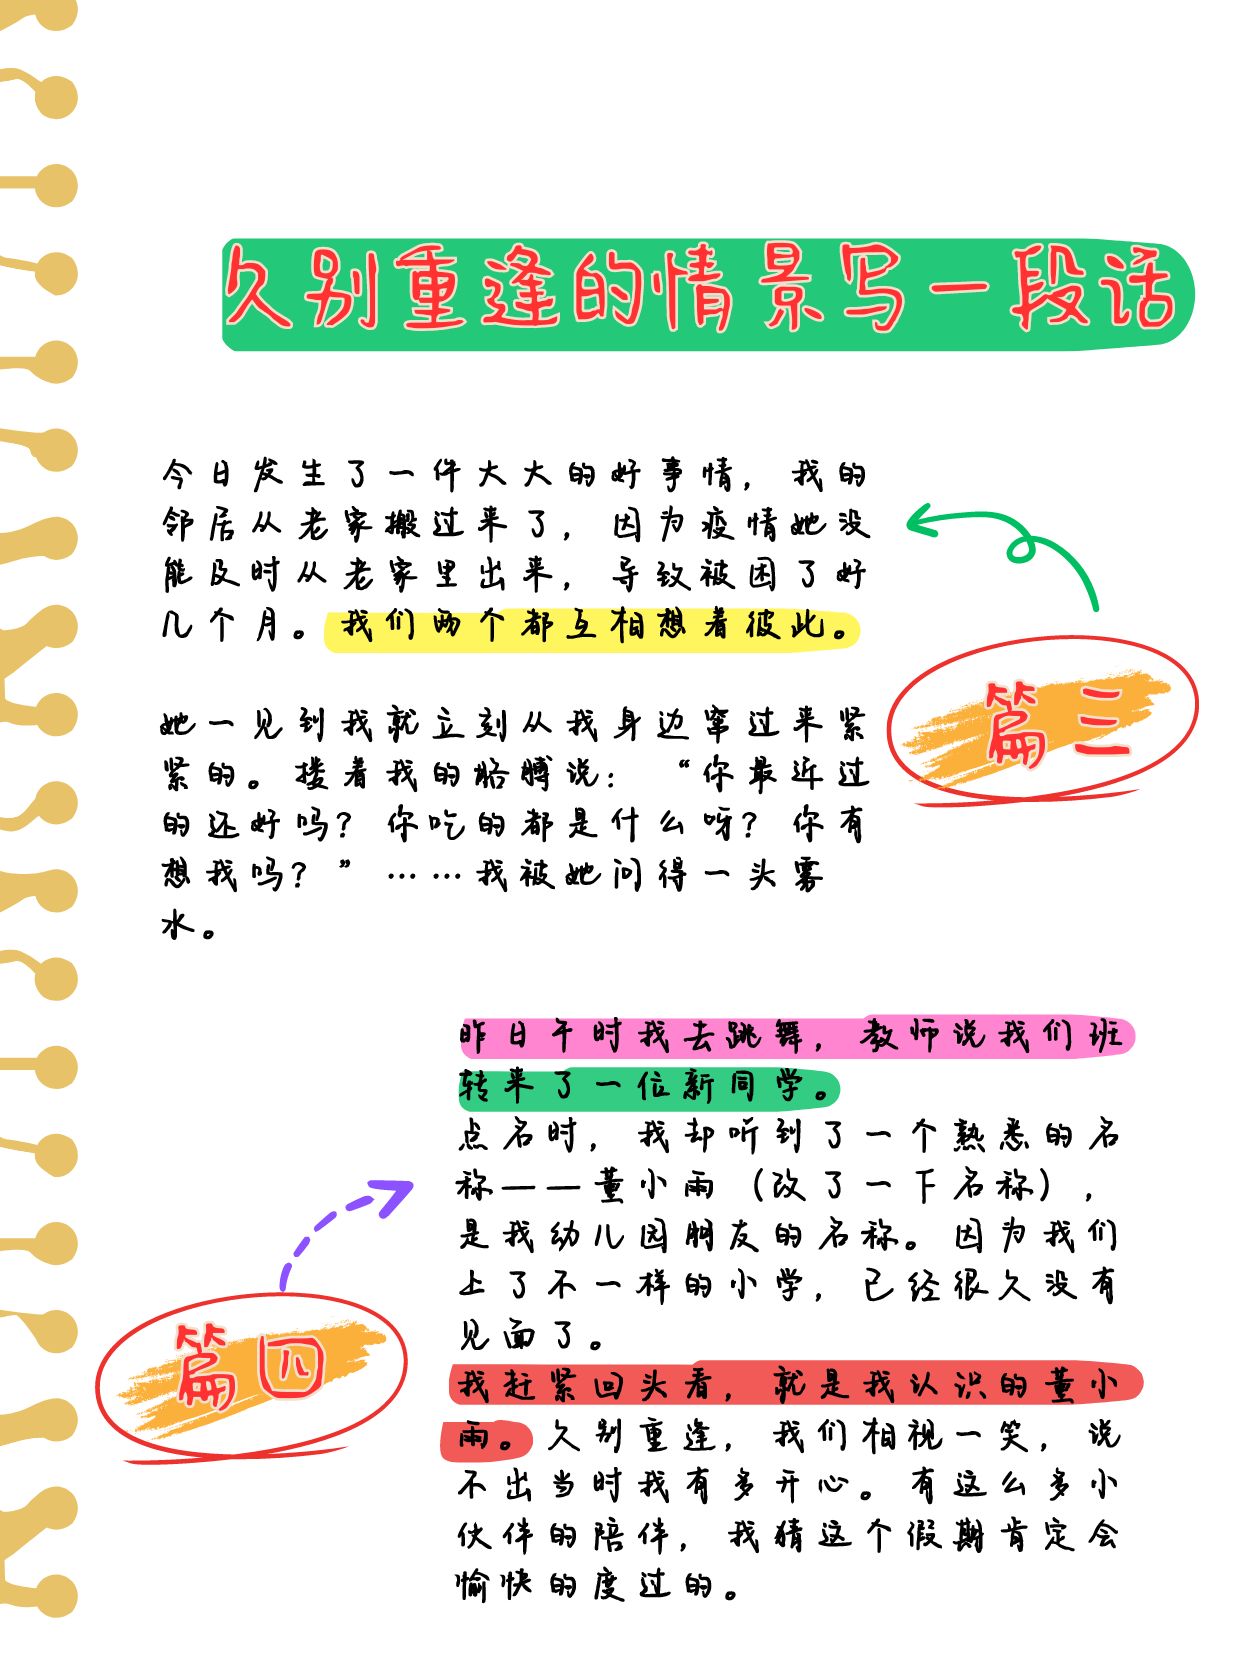 久别重逢的情景写一段话
今日发生了一件大大的好事情，我的
邻居从老家搬过来了，因为疫情她没
能及时从老家里出来，导致被困了好
几个月。我们两个都互相想着彼此。
她一见到我就立刻从我身边窜过来紧
紧的。搂着我的胳膊说：“你最近过
的还好吗？你吃的都是什么呀？你有
想我吗？”……我被她问得一头雾
水。
篇三
昨日午时我去跳舞，教师说我们班
转来了一位新同学。
点名时，我却听到了一个熟悉的名
称——董小雨（改了一下名称），
是我幼儿园朋友的名称。因为我们
上了不一样的小学，已经很久没有
见面了。
我赶紧回头看，就是我认识的董小
雨。久别重逢，我们相视一笑，说
不出当时我有多开心。有这么多小
伙伴的陪伴，我猜这个假期肯定会
愉快的度过的。
篇四